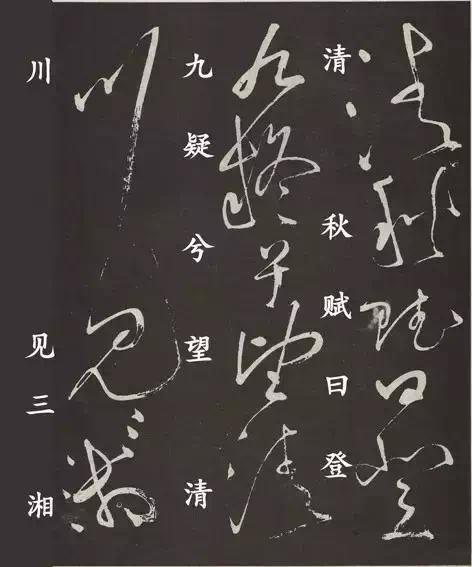 清秋赋曰登
九疑兮望清
川见三湘